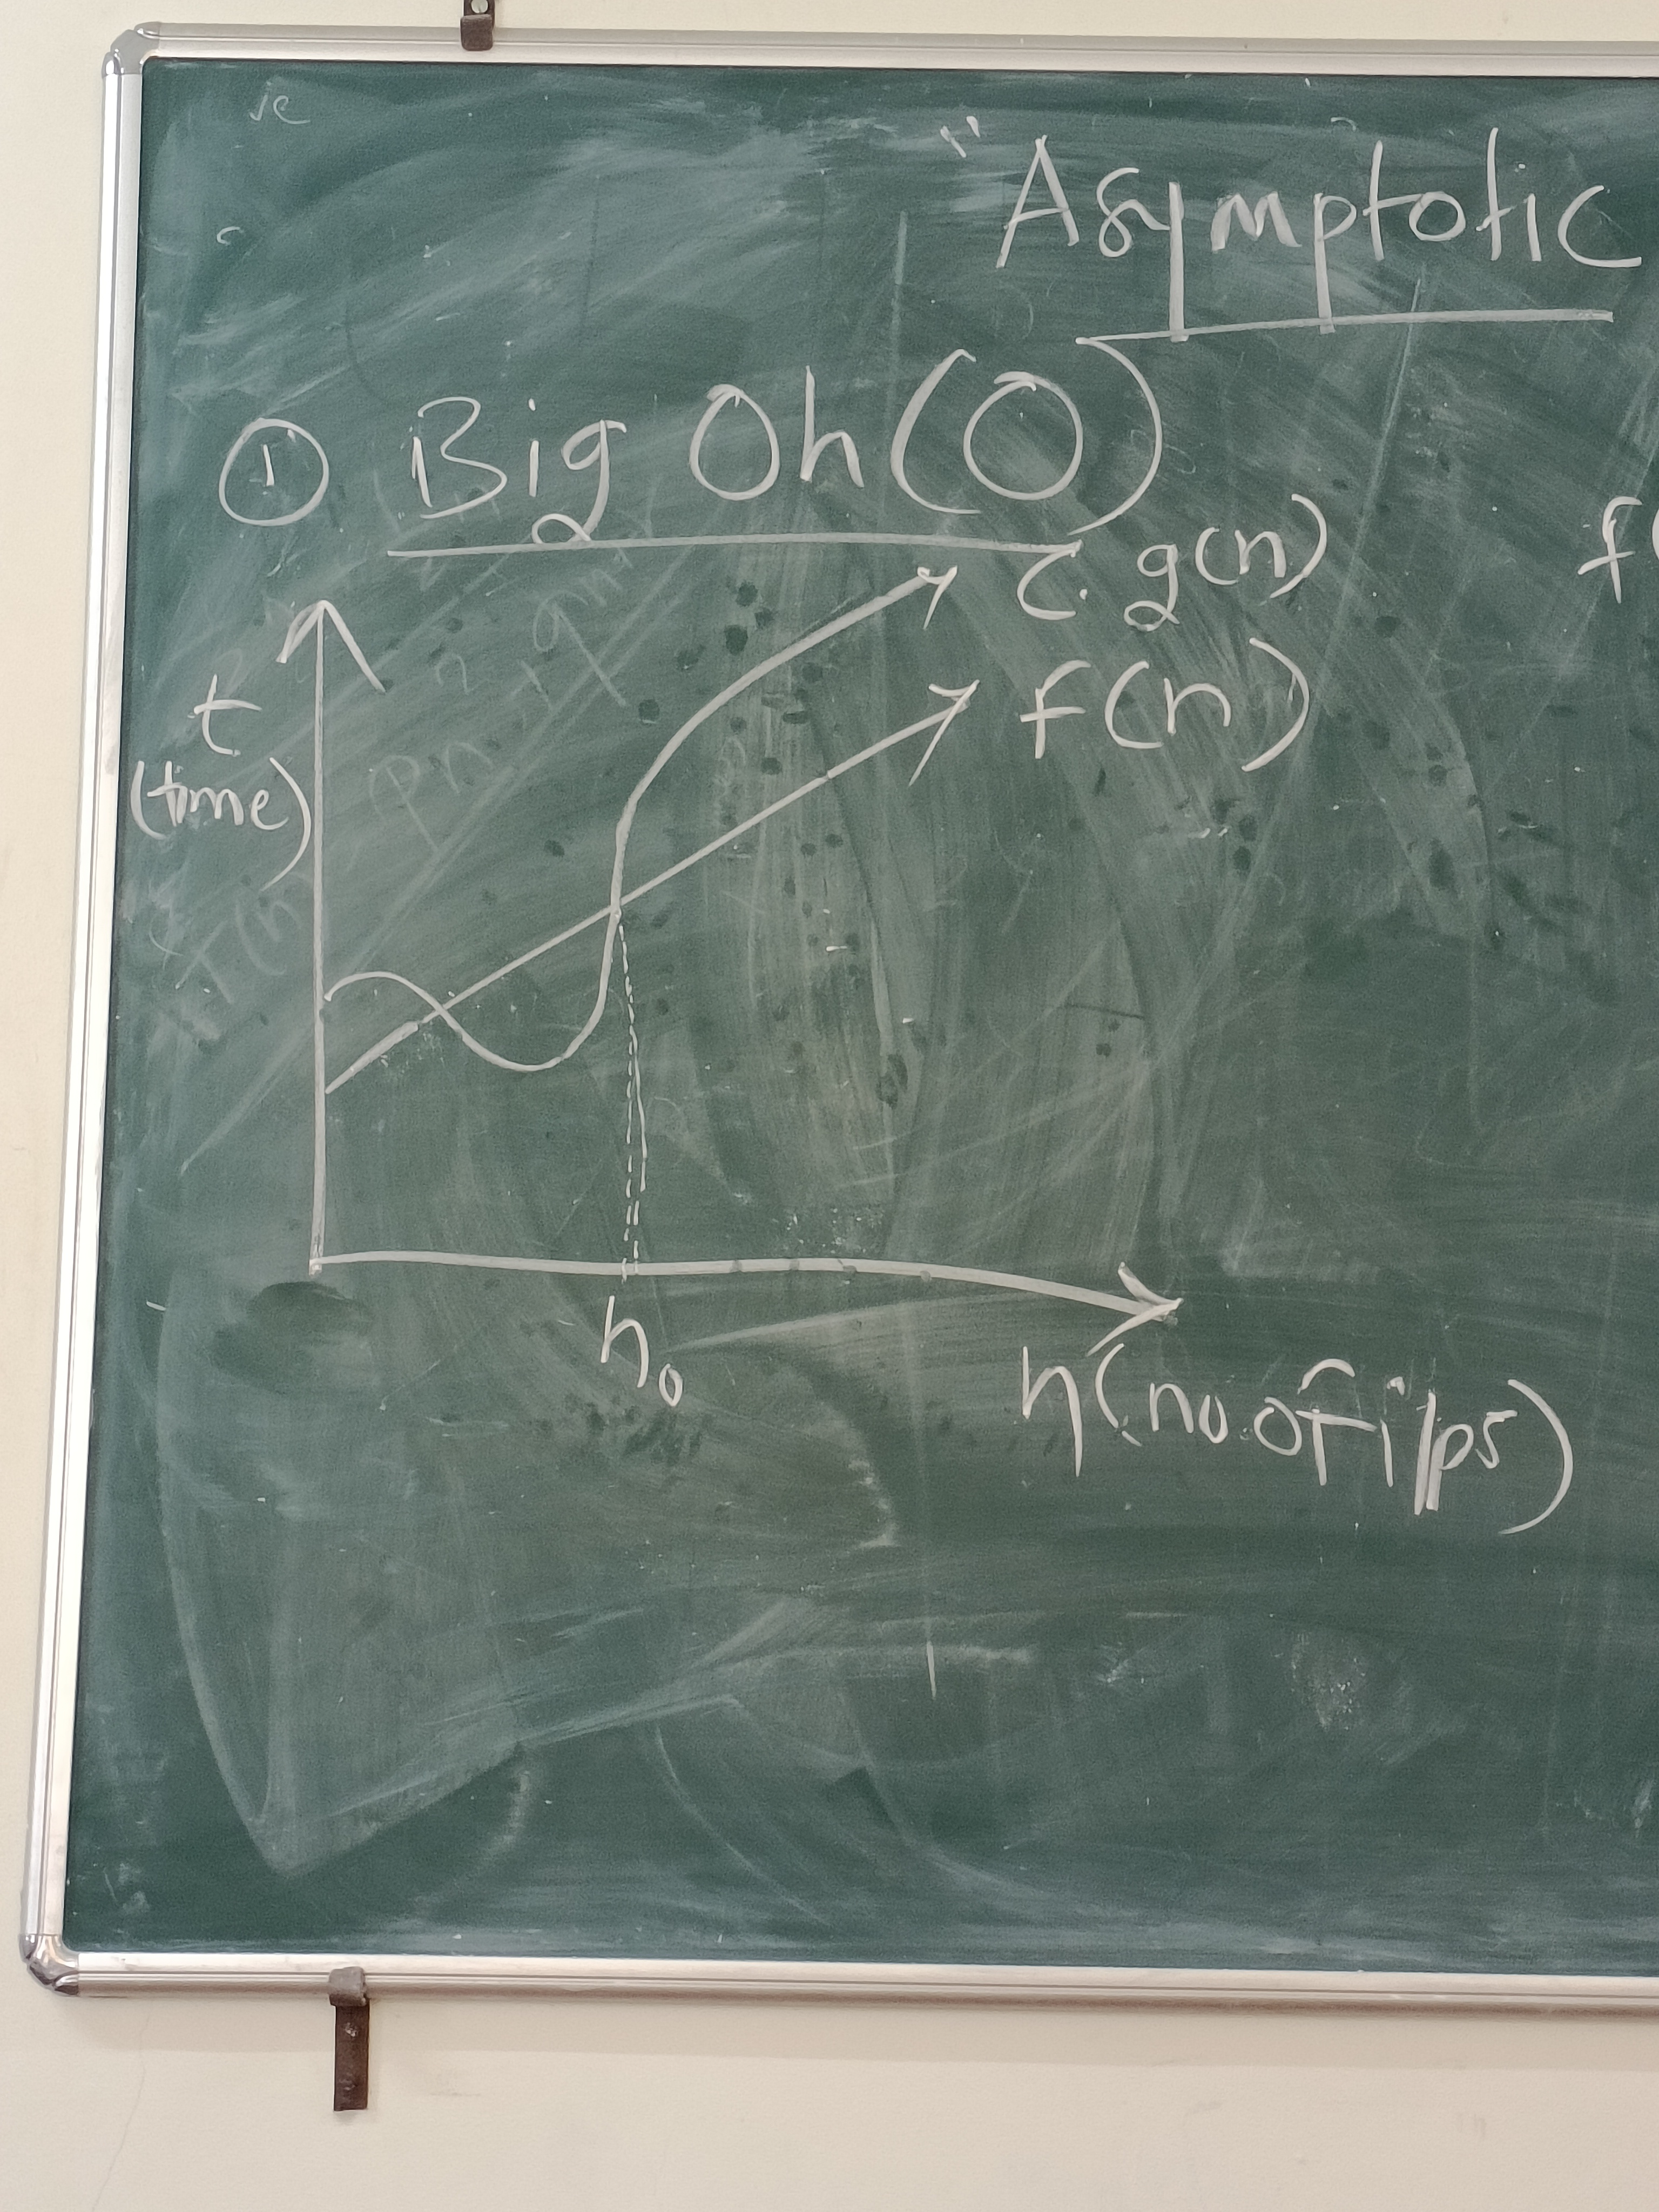 "Asymptotic
① Big Oh (O)
c. g(n)
f(
f(n)
t
(time)
n₀
n (no. of i/ps)